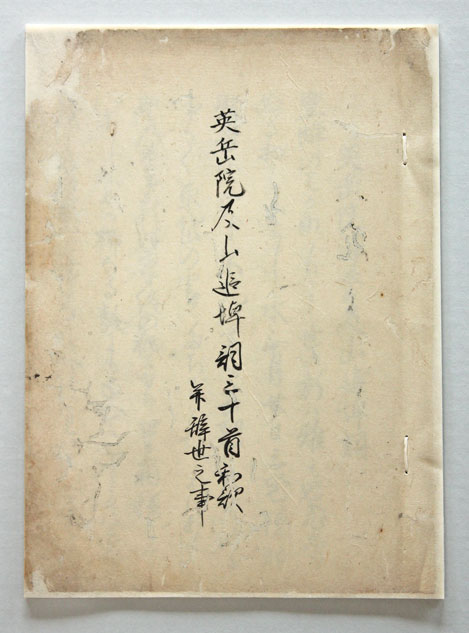 英岳院尽山追悼詞三十首和歌
并辞世之事